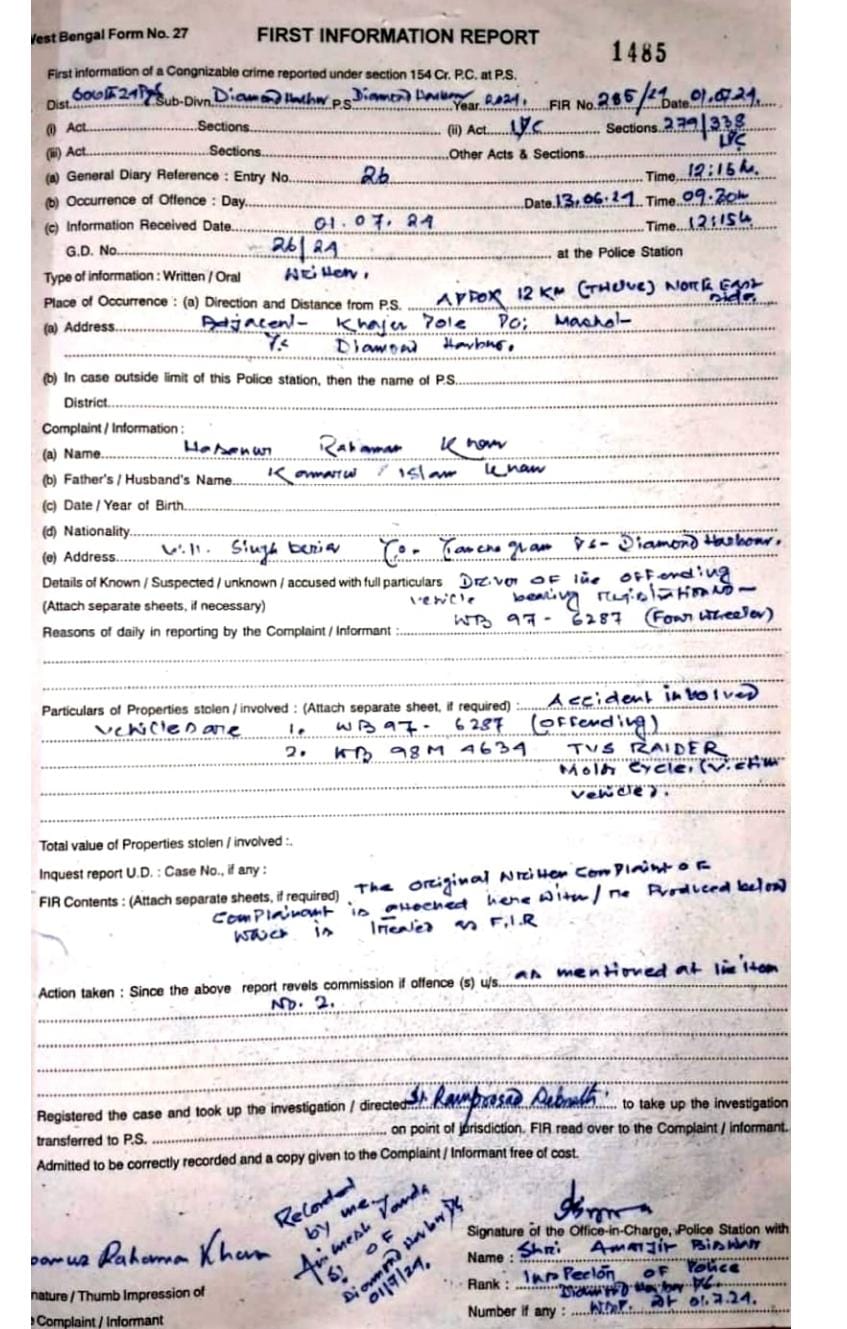 West Bengal Form No. 27
FIRST INFORMATION REPORT
1485
First information of a Congnizable crime reported under section 154 Cr. P.C. at P.S.
Dist. South 24 Pgs Sub-Divn. Diamond Harbor P.S Diamond Harbour Year 2024. FIR No. 285/24 Date 01.07.24.
(i) Act.......Sections....... (ii) Act IPC Sections 279/338 IPC
(iii) Act.......Sections.......Other Acts & Sections.......
(a) General Diary Reference : Entry No. 26 Time 12:15 hr.
(b) Occurrence of Offence : Day.......Date 13.06.24 Time 09.20
(c) Information Received Date 01.07.24 Time 12:15
G.D. No. 26/24 at the Police Station
Type of information : Written / Oral Written.
Place of Occurrence : (a) Direction and Distance from P.S. APPOX 12 KM (TWELVE) North East side.
(a) Address Adjacent- Khajer Pole PO;
P.S Diamond Harbour.
(b) In case outside limit of this Police station, then the name of P.S.......
District.......
Complaint / Information :
(a) Name Rahaman Khan
(b) Father's / Husband's Name Islam Khan
(c) Date / Year of Birth.......
(d) Nationality.......
(e) Address Vill. Singh beria P.O- PS- Diamond Harbour.
Details of Known / Suspected / unknown / accused with full particulars Driver OF the OFFending
(Attach separate sheets, if necessary) vehicle bearing Registration No-
WB 97 - 6287 (Four Wheeler)
Reasons of daily in reporting by the Complaint / Informant :.......
Particulars of Properties stolen / involved : (Attach separate sheet, if required) : Accident involved
vehicles are 1. WB 97 - 6287 (OFFending)
2. 98M 4634 TVS RAIDER
Motor Cycle. (Victim
vehicle).
Total value of Properties stolen / involved :.
Inquest report U.D. : Case No., if any :
FIR Contents : (Attach separate sheets, if required) The Original Written Complaint OF
Complainant is attached here with / Produced below
which is treated as F.I.R
Action taken : Since the above report revels commission if offence (s) u/s. as mentioned at the item
NO. 2.
Registered the case and took up the investigation / directed SI. Ramprosad Debnath to take up the investigation
transferred to P.S. ....... on point of jorisdiction. FIR read over to the Complaint / informant.
Admitted to be correctly recorded and a copy given to the Complaint / Informant free of cost.
Recorded
by me
Animesh
SI OF
Diamond Harbor PS
01/7/24.
Rahaman Khan
nature / Thumb Impression of
Complaint / Informant
Signature of the Office-in-Charge, Police Station with
Name : Shri Amarjit Biswas
Rank : Inspector of Police
Diamond Harbor PS.
Number if any : 01.7.24.